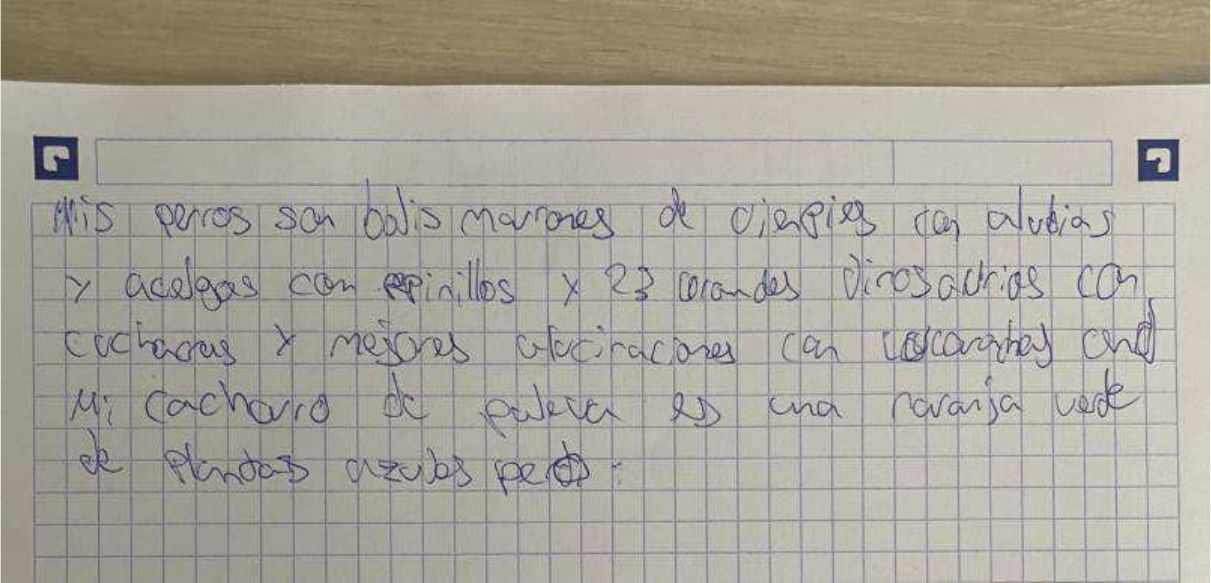 Mis perros son bolis marrones de ciempies con alubias
y acelgas con espinillos y 23 grandes dinosaurios con
cucharas y mejores alucinaciones con
Mi cachorro de es una naranja verde
de plantas azules pero